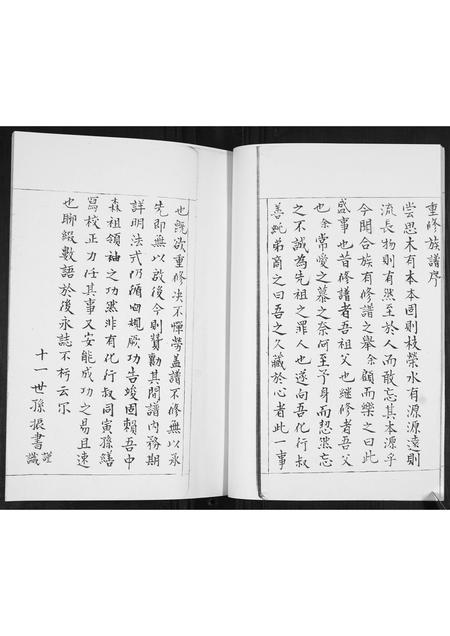 重修族譜序
尝思木有本本固則枝榮水有源源遠則
流長物則有然至於人而敢忘其本源乎
今聞合族有修譜之舉余顧而樂之曰此
盛事也昔修譜者吾祖父也继修者吾父
也余常愛之慕之奈何至予身而恝然忘
之不誠為先祖之罪人也遂向吾化行叔
善 弟商之曰吾之久藏於心者此一事
也既欲重修决不憚勞盖譜不修無以承
先即無以啟後今則贊勷其間譜内務期
詳明法式仍循 厥功告竣固賴吾中
森祖領袖之功然非有化行叔同寅孫繕
寫校正力任其事又安能成功之易且速
也聊綴數語於後永誌不朽云尔
十一世孫振書謹識